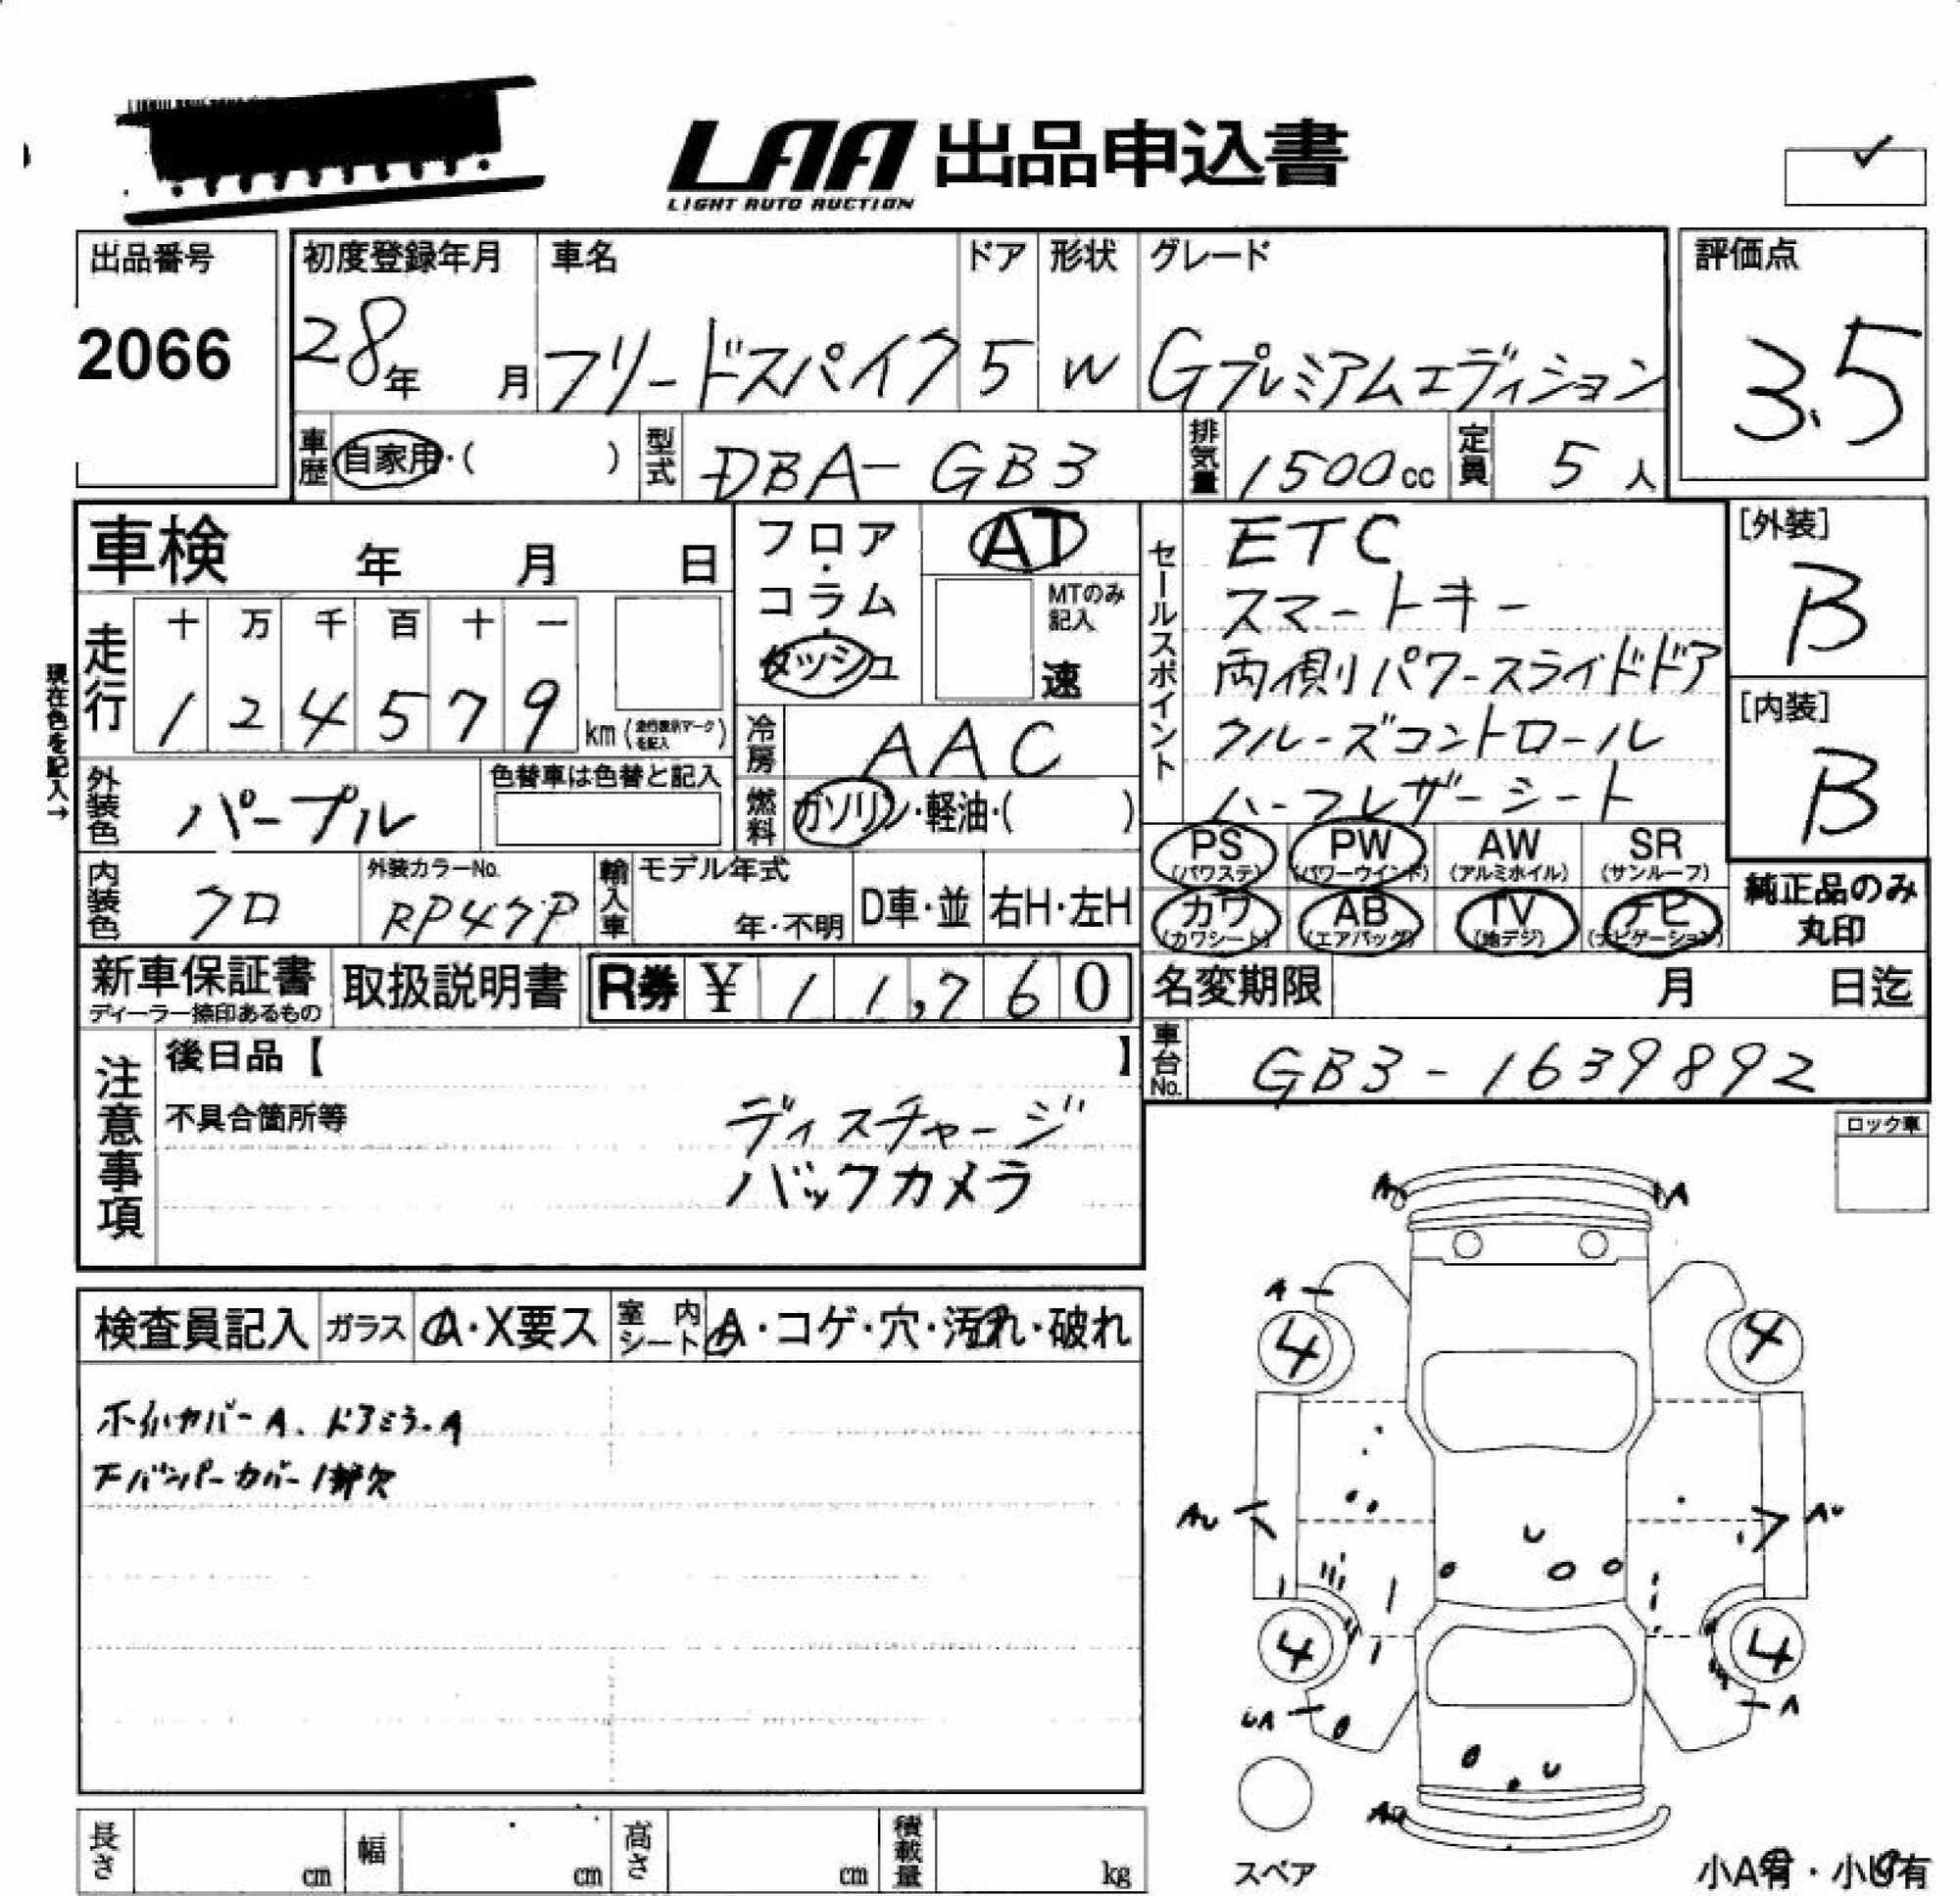 LAA 出品申込書
LIGHT AUTO AUCTION
出品番号
2066
初度登録年月
28年 月
車名
フリードスパイク
ドア
5
形状
W
グレード
Gプレミアムエディション
評価点
3.5
車歴 自家用・( )
型式 DBA-GB3
排気量 1500cc
定員 5人
車検 年 月 日
フロア・コラム・ダッシュ
AT
MTのみ記入
速
セールスポイント
ETC
スマートキー
両側パワースライドドア
クルーズコントロール
ハーフレザーシート
[外装]
B
[内装]
B
現在色を記入→
走行
十 万 千 百 十 一
1 2 4 5 7 9
km (走行表示マークを記入)
冷房 AAC
外装色 パープル
色替車は色替と記入
燃料 ガソリン・軽油・( )
PS (パワステ)
PW (パワーウインド)
AW (アルミホイル)
SR (サンルーフ)
カワ (カワシート)
AB (エアバッグ)
TV (地デジ)
ナビ (ナビゲーション)
純正品のみ丸印
内装色 クロ
外装カラーNo.
RP47P
輸入車
モデル年式
年・不明
D車・並
右H・左H
新車保証書
ディーラー捺印あるもの
取扱説明書
R券 ¥ 11,760
名変期限 月 日迄
車台No. GB3-1639892
注意事項
後日品【 】
不具合箇所等
ディスチャージ
バックカメラ
ロック車
検査員記入
ガラス A・X要ス
室内シート A・コゲ・穴・汚れ・破れ
ホイルカバーA. ドアミラーA
Fバンパーカバー1部欠
A
A
4
4
AU
AU
4
4
UA
A
スペア
小A有・小U有
長さ cm
幅 cm
高さ cm
積載量 kg